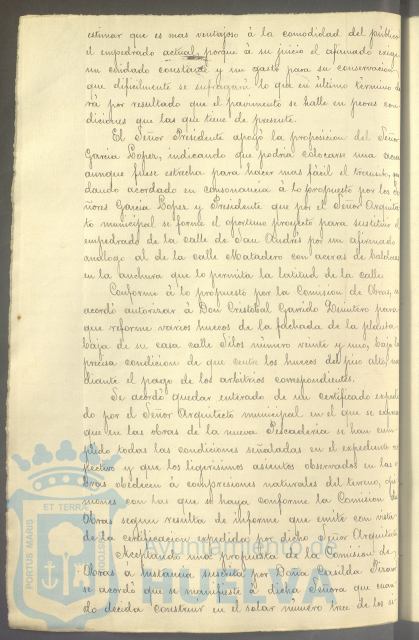 estimar que es mas ventajoso á la comodidad del público
el empedrado actual, porque á su juicio el afirmado exige
un cuidado constante y un gasto para su conservacion,
que dificilmente se sufragaria lo que en último término da
rá por resultado que el pavimento se halle en peores con
diciones que las que tiene de presente.
El Señor Presidente apoyó la proposicion del Señor
Garcia Lopez, indicando que podria colocarse una acera
aunque fuese estrecha para hacer mas fácil el transito, que
dando acordado en consonancia á lo propuesto por los Se
ñores Garcia Lopez y Presidente que por el Señor Arquitec
to municipal se forme el oportuno proyecto para sustituir el
empedrado de la calle de San Andrés por un afirmado
análogo al de la calle Matadero con aceras de baldosas
en la anchura que lo permita la latitud de la calle.
Conforme á lo propuesto por la Comision de Obras, se
acordó autorizar á Don Cristobal Garrido Quintero para
que reforme varios huecos de la fachada de la planta
baja de su casa calle Silos número veinte y uno, bajo la
precisa condicion de que centre los huecos del piso alto, me
diante el pago de los arbitrios correspondientes.
Se acordó quedar enterado de un certificado expedi
do por el Señor Arquitecto municipal en el que se expresa
que en las obras de la nueva Pescadería se han cum
plido todas las condiciones señaladas en el expediente res
pectivo y que los ligerisimos asientos observados en las o
bras obedecen á compresiones naturales del terreno, opi
niones con las que se haya conforme la Comision de
Obras segun resulta de informe que emite con vista
de la certificacion expedida por dicho Señor Arquitecto.
Aceptando una propuesta de la Comision de
Obras á instancia suscrita por Doña Casilda
se acordó que se manifieste á dicha Señora que cuan
do decida construir en el solar número trece de los si
PORTUS MARIS
ET TERRÆ
CUSTODIA
Ayuntamiento de
HUELVA